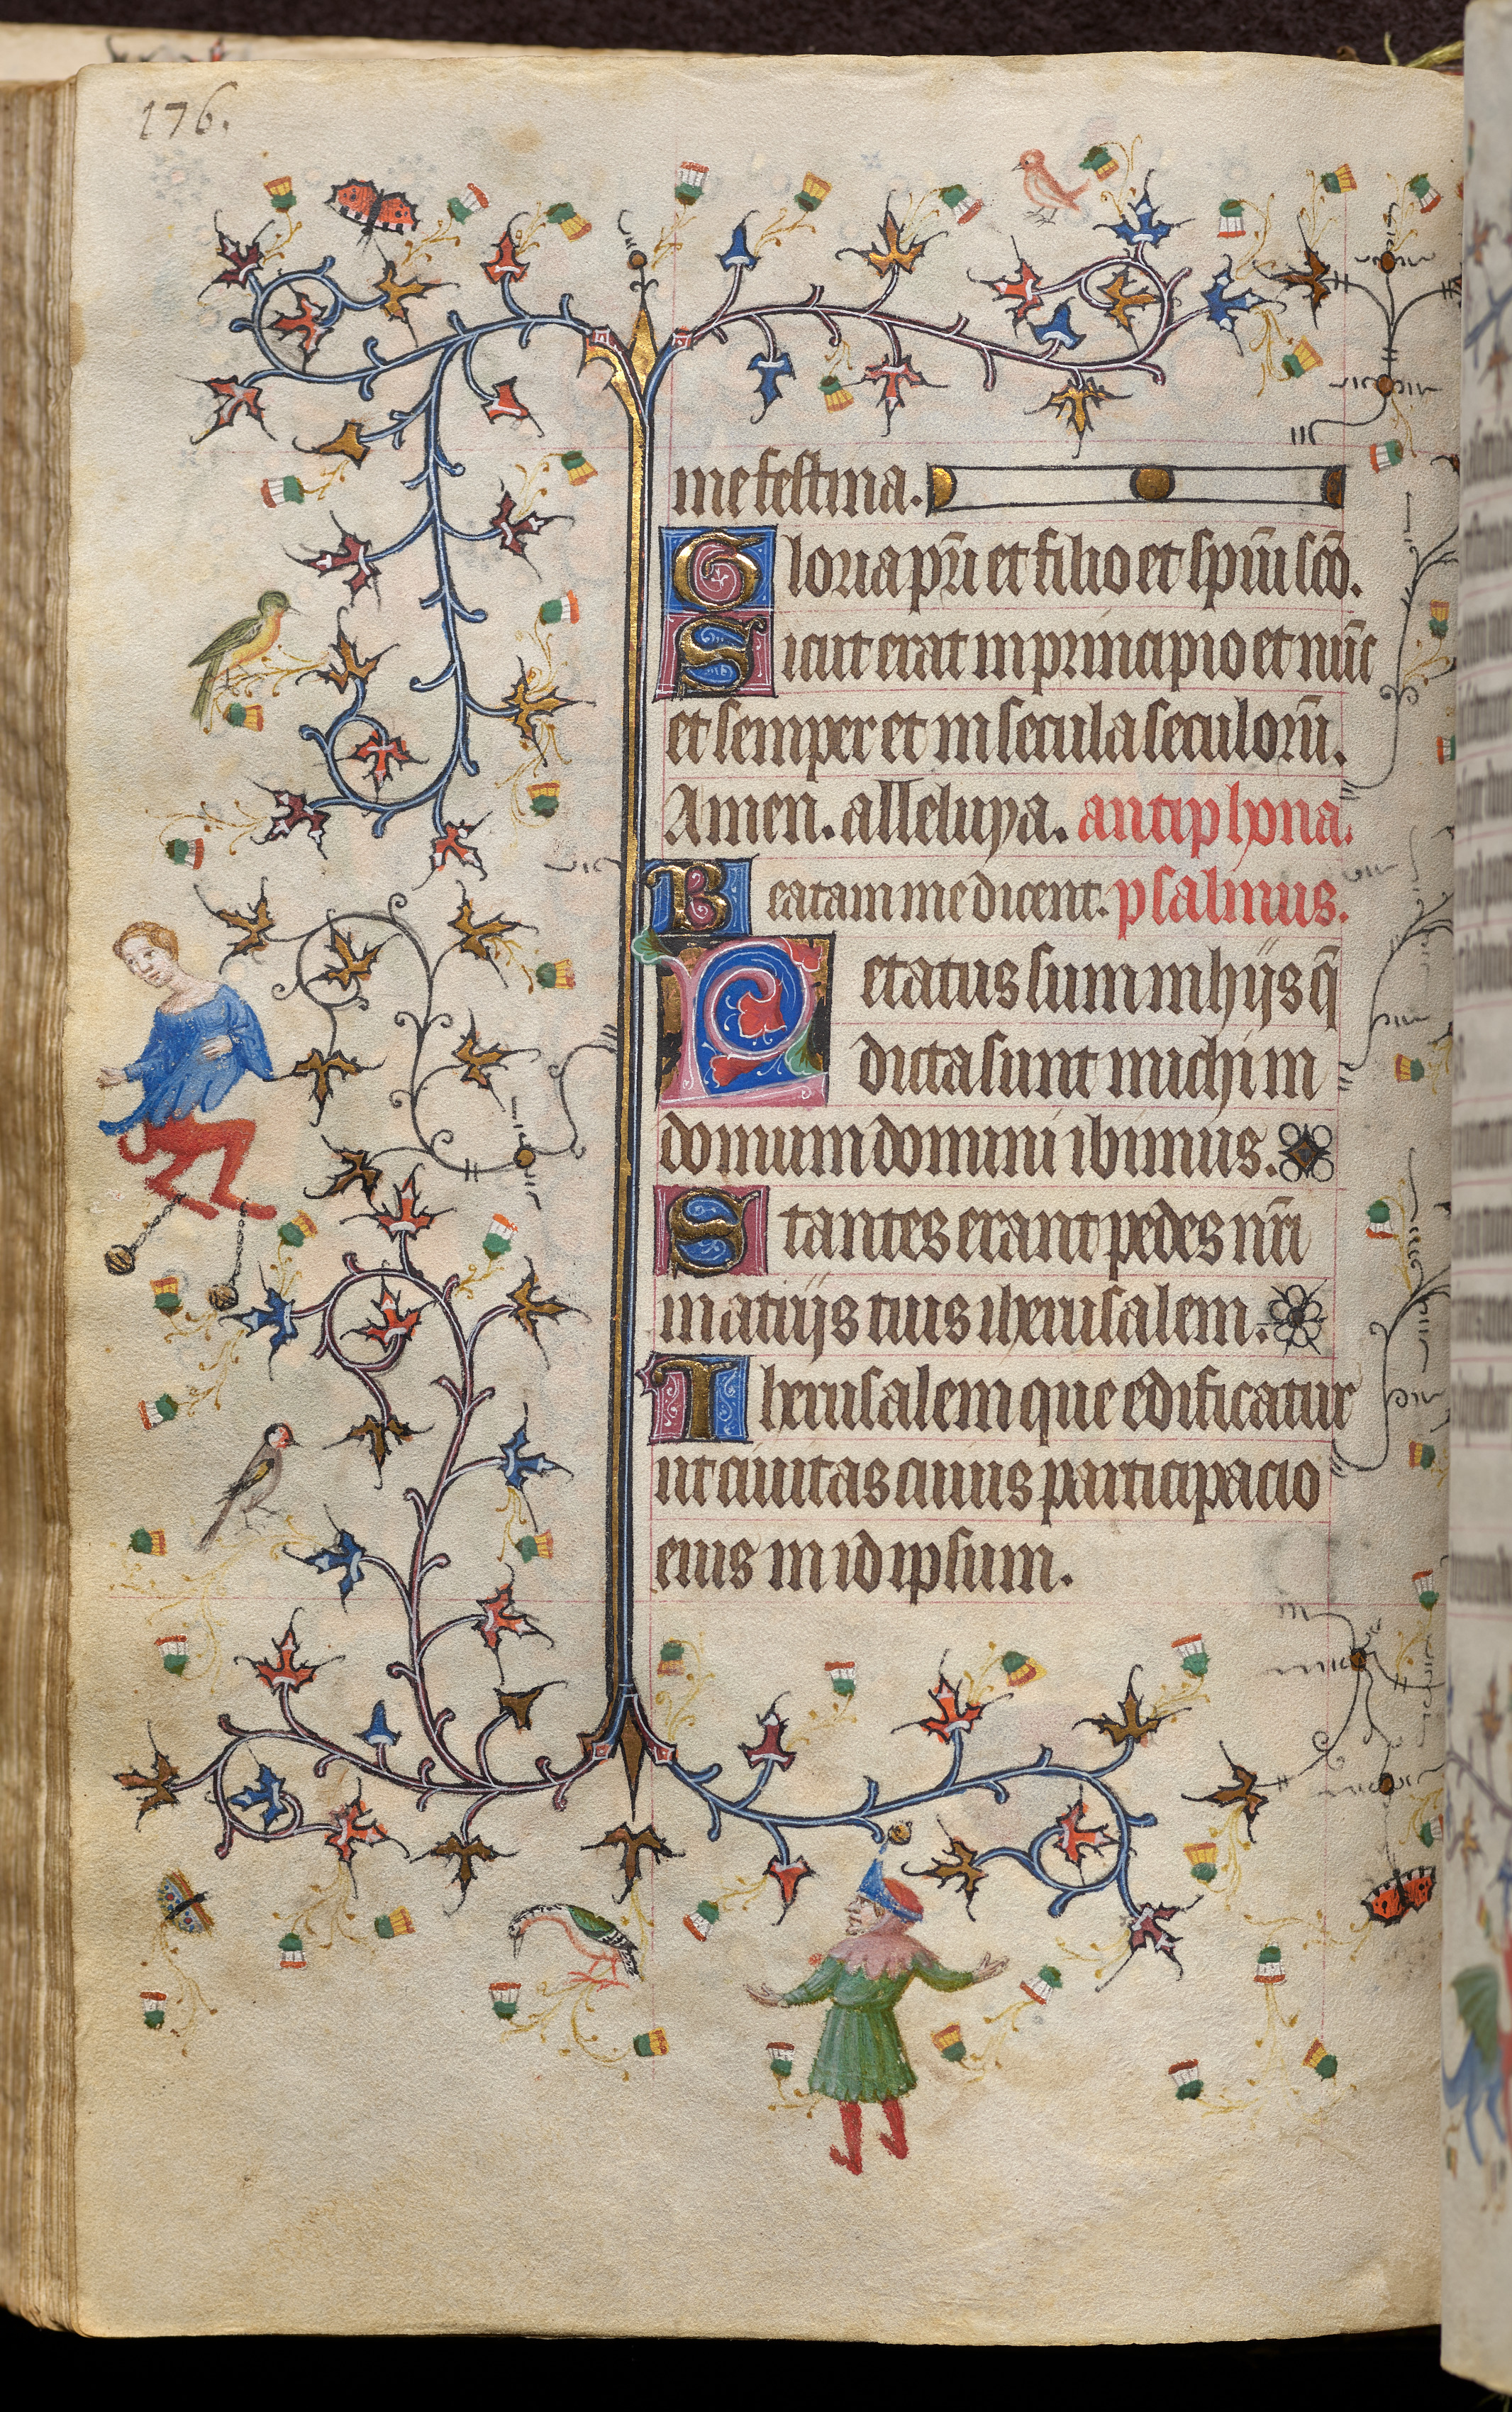 176.
me festina.
Gloria pr̄i et filio et spiūi sc̄o.
Sicut erat in principio et nūc
et semper et in secula seculorū.
Amen. alleluya. antiphona.
Beatam me dicent. psalmus.
Letatus sum in hijs q̄
dicta sunt michi in
domum domini ibimus.
Stantes erant pedes nr̄i
in atrijs tuis iherusalem.
Iherusalem que edificatur
ut civitas cuius participacio
eius in idipsum.